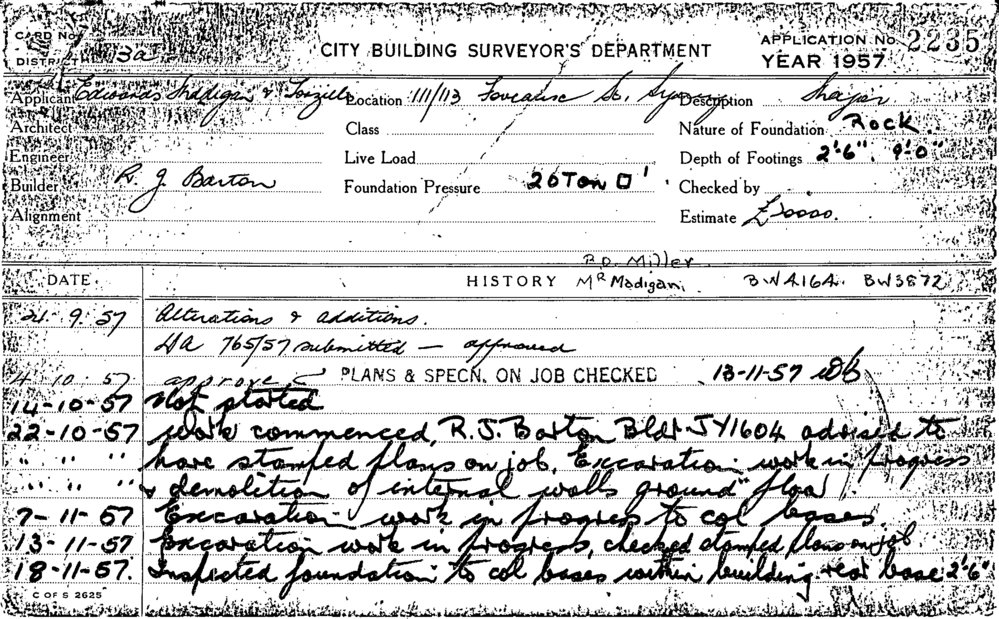 CARD No.
CITY BUILDING SURVEYOR'S DEPARTMENT
APPLICATION No. 2235
DISTRICT 3a
YEAR 1957
Applicant Edwards Madigan & Location 111/113 Foveaux St. Sydney Description Shops
Architect Class Nature of Foundation Rock.
Engineer Live Load Depth of Footings 2'6". 9'0"
Builder R. J. Barton Foundation Pressure 20 Ton □' Checked by
Alignment Estimate £
R.D. Miller
DATE HISTORY Mr Madigan. BW4164. BW3872
21. 9. 57 Alterations & additions.
DA 765/57 submitted — approved
4. 10. 57 approve PLANS & SPECN. ON JOB CHECKED 13-11-57
14-10-57 Not started
22-10-57 Work commenced, R.J. Barton Bldr. JY1604 advised to
" " " have stamped plans on job. Excavation work in progress
" " " & demolition of internal walls ground floor.
7-11-57 Excavation work in progress to col bases.
13-11-57 Excavation work in progress, checked stamped plans on job
18-11-57. Inspected foundation to col bases within building. rear base 2'6"
C OF S 2625